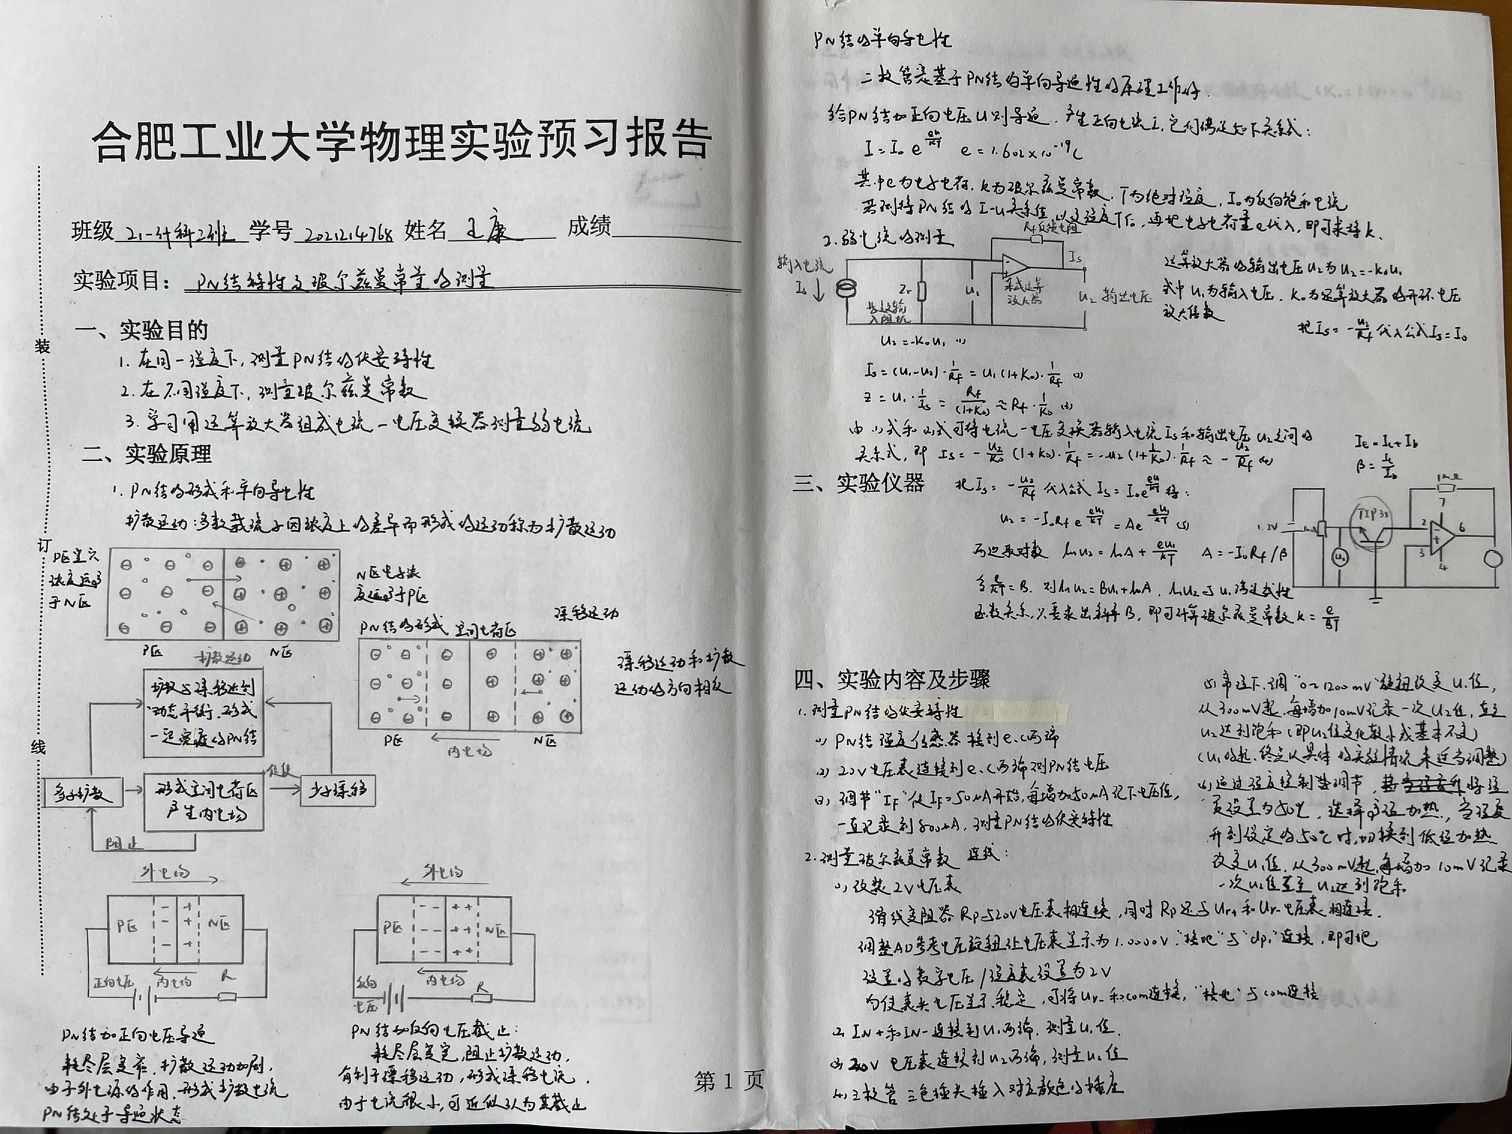 合肥工业大学物理实验预习报告
班级 21-计科2班 学号 2021214768 姓名 王康 成绩
实验项目: PN结特性及玻尔兹曼常量的测量
一、实验目的
1. 在同一温度下, 测量PN结的伏安特性
2. 在不同温度下, 测量玻尔兹曼常数
3. 学习用运算放大器组成电流—电压变换器测量弱电流
二、实验原理
1. PN结的形式和单向导电性
扩散运动: 多数载流子因浓度上的差异而形成的运动称为扩散运动
P区空穴
浓度远高
于N区
N区电子浓
度远高于P区
P区
扩散运动
N区
漂移运动
PN结的形式 空间电荷区
漂移运动和扩散
运动的方向相反
P区
内电场
N区
扩散与漂移达到
动态平衡, 形成
一定宽度的PN结
多子扩散
形成空间电荷区
产生内电场
促使
少子漂移
阻止
外电场
P区
N区
正向电压
内电场
R
外电场
P区
N区
反向
电压
内电场
R
PN结加正向电压导通
耗尽层变窄, 扩散运动加剧,
由于外电源的作用, 形成扩散电流
PN结处于导通状态
PN结加反向电压截止:
耗尽层变宽, 阻止扩散运动,
有利于漂移运动, 形成漂移电流,
由于电流很小, 可近似认为其截止
装
订
线
第 1 页
PN结的单向导电性
二极管是基于PN结的单向导通性的原理工作的.
给PN结加正向电压U则导通, 产生正向电流I, 它们满足如下关系式:
I=I₀e^(eU/kT) e=1.602×10⁻¹⁹C
其中e为电子电荷, k为玻尔兹曼常数, T为绝对温度, I₀为反向饱和电流
若测得PN结的I-U关系值, 以及温度T后, 再把电子电荷量e代入, 即可求得k.
2. 弱电流的测量
Rf反馈电阻
输入电流
Is
Zr
U₁
Is
U₂ 输出电压
U₂=-K₀U₁ (1)
运算放大器的输出电压U₂为U₂=-K₀U₁
式中U₁为输入电压, K₀为运算放大器的开环电压
放大倍数
把Is=-U₂/Rf代入公式Is=I₀
Is=(U₁-U₂)·1/Rf=U₁(1+K₀)·1/Rf (2)
Z=U₁·1/Is=Rf/(1+K₀)≈Rf·1/K₀ (3)
由(1)式和(2)式可得电流—电压变换器输入电流Is和输出电压U₂之间的
关系式, 即 Is=-U₂/K₀(1+K₀)·1/Rf=-U₂(1+1/K₀)·1/Rf≈-U₂/Rf (4)
Ie=Ic+Ib
β=Ic/Ib
三、实验仪器
把Is=-U₂/Rf代入公式Is=I₀e^(eU/kT)得:
U₂=-I₀Rf e^(eU₁/kT)=Ae^(eU₁/kT) (5)
两边取对数 lnU₂=lnA+eU₁/kT A=-I₀Rf/β
令e/kT=B, 则lnU₂=BU₁+lnA, lnU₂与U₁满足线性
函数关系, 只要求出斜率B, 即可计算玻尔兹曼常数k=e/BT
TIP31
2
3
4
6
7
四、实验内容及步骤
1. 测量PN结的伏安特性
(1) PN结温度传感器接到e、c两端
(2) 20V电压表连接到e、c两端测PN结电压
(3) 调节“IF”使IF=50μA开始, 每增加50μA记下电压值,
一直记录到800μA, 测量PN结的伏安特性
2. 测量玻尔兹曼常数 连线:
(1) 改装2V电压表
滑线变阻器Rp与20V电压表相连接, 同时Rp还与Ur+和Ur-电压表相连接.
调整AD参考电压旋钮让电压表显示为1.0000V “接地”与“dp1”连接, 即可把
设置的数字电压/温度表设置为2V
为使表头电压显示稳定, 可将Ur-和com连接, “接地”与com连接
2. IN+和IN-连接到U₁两端, 测量U₁值.
(3) 20V电压表连接到U₂两端, 测量U₂值
(4) 三极管三色插头插入对应颜色的插座
(5) 常温下, 调“0~1200mV”旋钮改变U₁值,
从300mV起, 每增加10mV记录一次U₂值, 直至
U₂达到饱和(即U₂值变化较小或基本不变)
(U₁的起、终点从具体的实验情况来适当调整)
(6) 通过温度控制器调节, 将温
度设置为50℃, 选择高温加热, 当温度
升到设定的50℃时, 切换到低温加热
改变U₁值, 从300mV起, 每增加10mV记录
一次U₂值直至U₂达到饱和